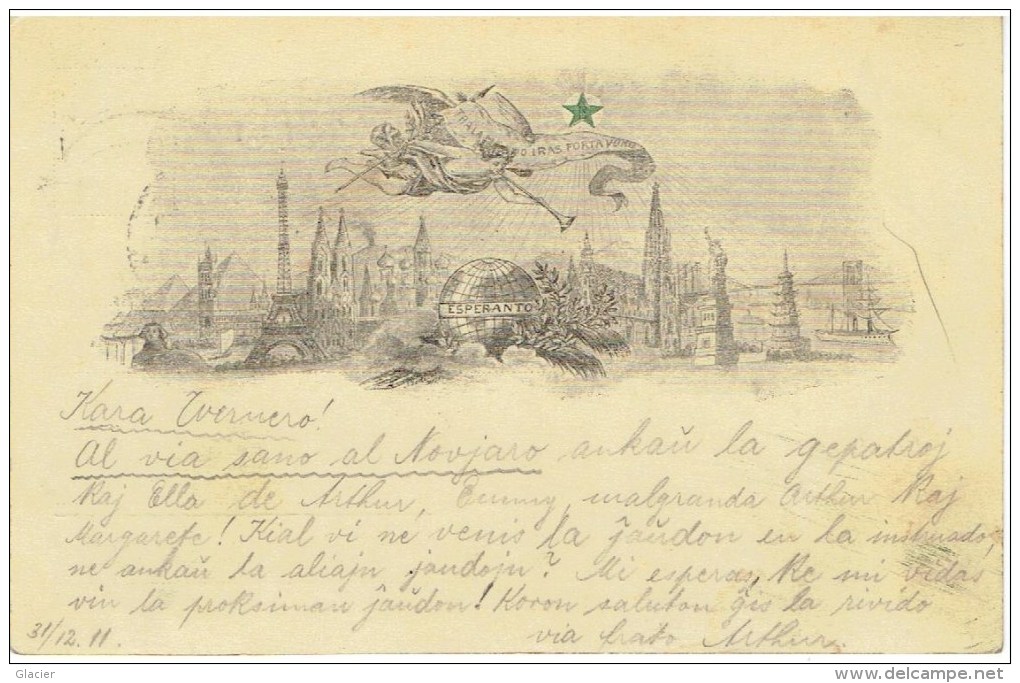 IRAS FORTA VOKO
ESPERANTO
Kara Wernero!
Al via sano al Novjaro ankaŭ la gepatroj
Kaj Ella de Arthur, Emmy, malgranda Arthur Kaj
Margarete! Kial vi ne venis la ĵaŭdon en la instruado,
ne ankaŭ la aliajn ĵaŭdojn? Mi esperas, Ke mi vidas
vin la proksiman ĵaŭdon! Koron saluton ĝis la rivido
31/12. 11.
via frato Arthur.
Glacier
delcampe.net